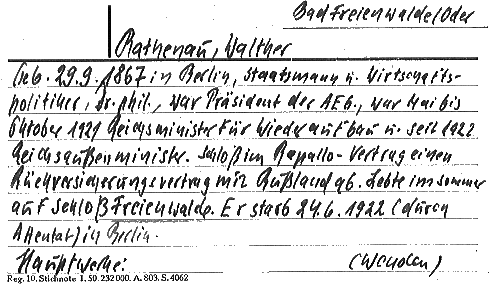 Bad Freienwalde/Oder
Rathenau, Walther
Geb. 29.9.1867 in Berlin, Staatsmann u. Wirtschafts-
politiker, Dr. phil., war Präsident der AEG., war Mai bis
Oktober 1921 Reichsminister für Wiederaufbau u. seit 1922
Reichsaußenminister. Schloß im Rapallo-Vertrag einen
Rückversicherungsvertrag mit Rußland ab. Lebte im Sommer
auf Schloß Freienwalde. Er starb 24.6.1922 (durch
Attentat) in Berlin.
Hauptwerke: (Wenden)
Reg. 10. Stichnote 1. 50. 232000. A. 803. S. 4062